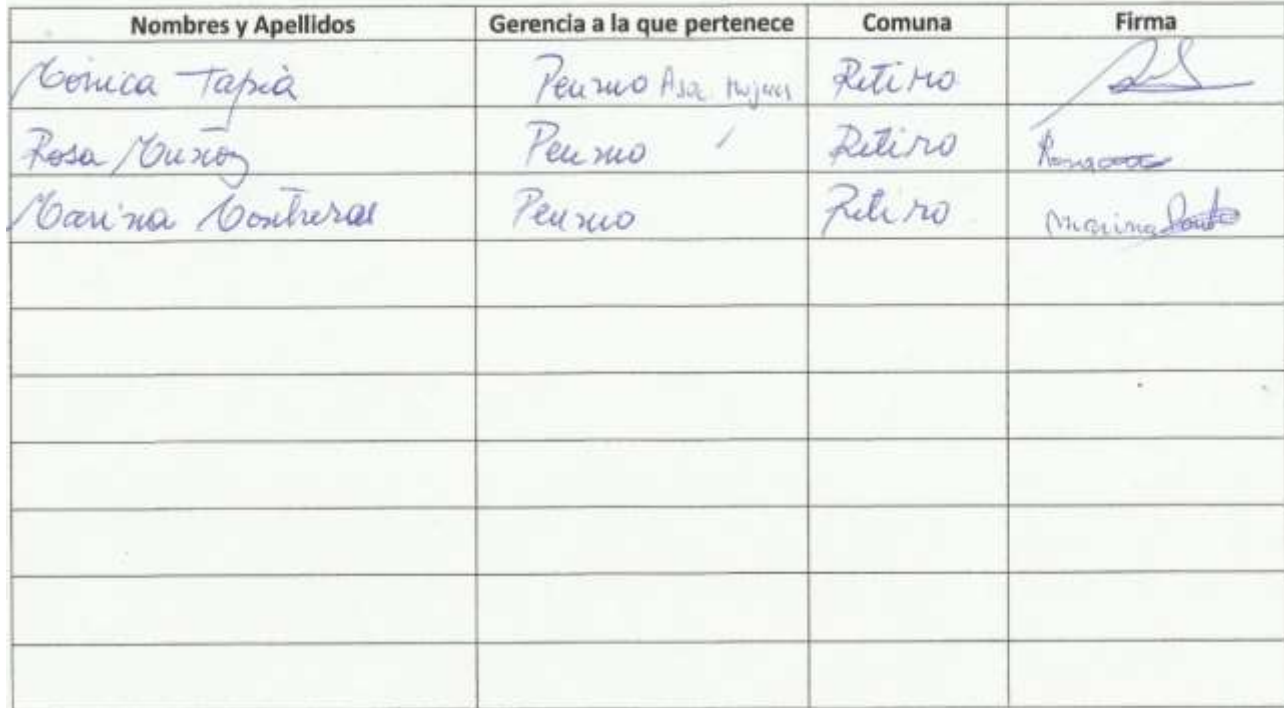 Nombres y Apellidos Gerencia a la que pertenece Comuna Firma
Mónica Tapia Peumo Asa Mujeres Retiro
Rosa Muñoz Peumo Retiro
Marina Contreras Peumo Retiro Marina